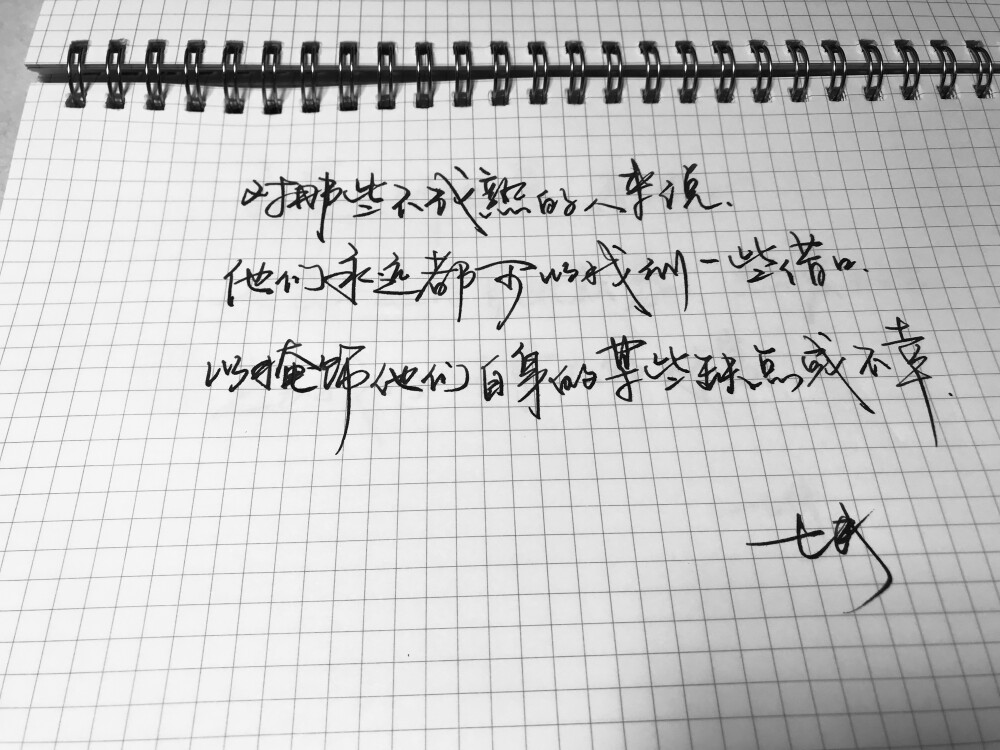 对那些不成熟的人来说.
他们永远都可以找到一些借口.
以掩饰他们自身的某些缺点或不幸.
七